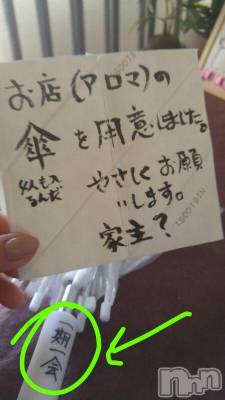 お店(アロマ)の
傘を用意しました。
4人も入
るんだ
やさしくお願
いします。
家主?
一期一会